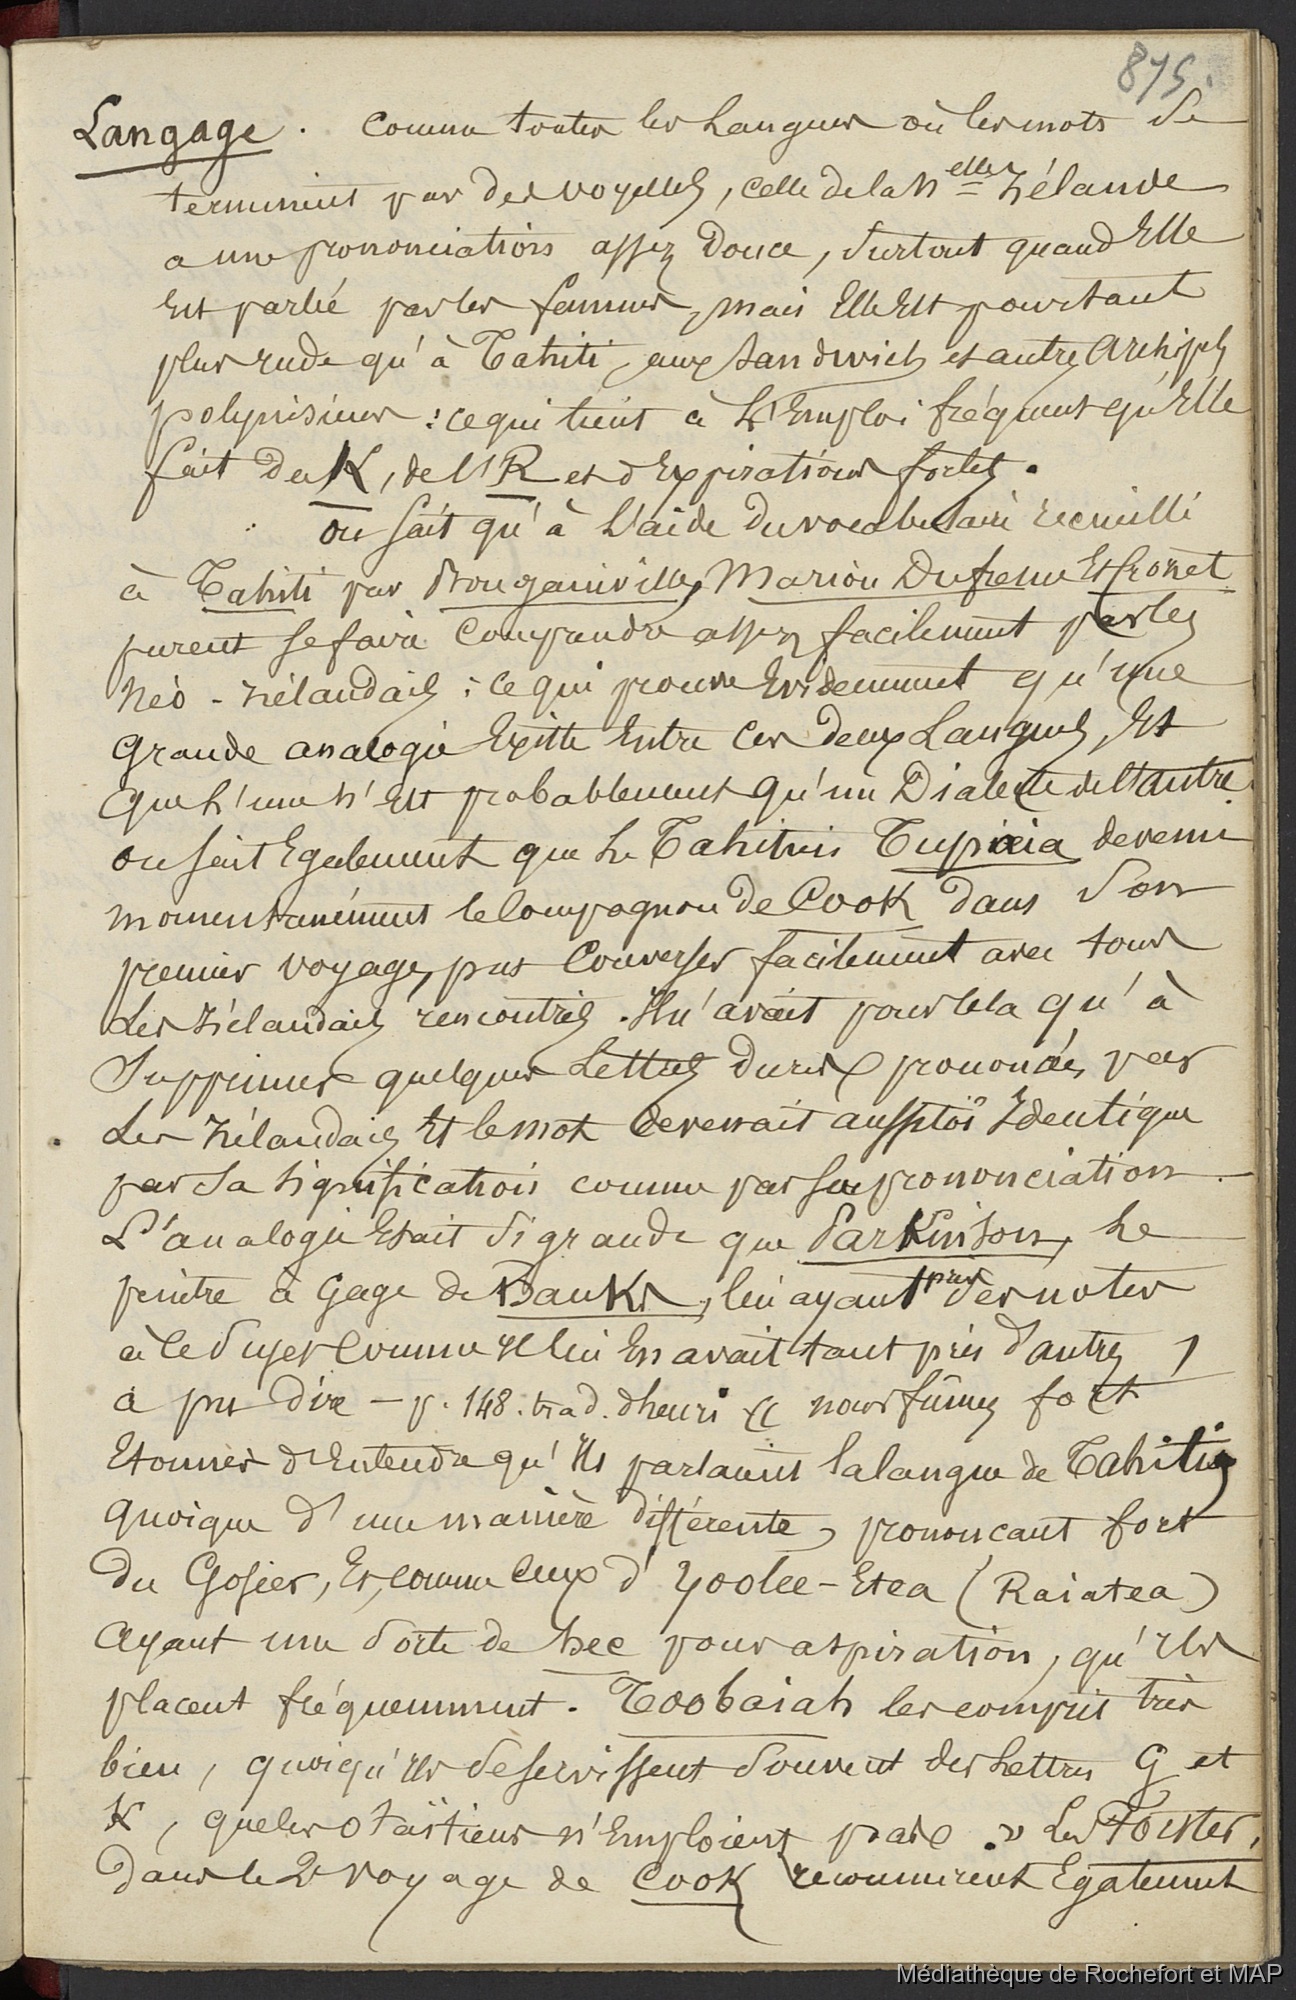 875.
Langage. Comme toutes les Langues où les mots se
terminent par des voyelles, celle de la Nelle Zélande
a une prononciation assez douce, surtout quand Elle
Est parlé par les femmes, mais Elle Est pourtant
plus rude qu'à Tahiti, aux Sandwich et autres Archipels
polynisiens : ce qui tient à L'Emploi fréquent qu'Elle
fait du K, de l'R et d'Expirations fortes.
on sait qu'à L'aide du vocabulaire recueilli
à Tahiti par Bougainville, Marion Dufresne Et Crozet
purent se faire Comprendre assez facilement par les
Néo-Zélandais ; ce qui prouve Evidemment qu'une
grande analogie Existe Entre Ces deux Langues, Et
que L'une n'Est probablement qu'un Dialecte de l'autre.
on sait Egalement que Le Tahitien Tupaia devenu
momentanément le Compagnon de Cook dans Son
premier voyage, put Converser facilement avec tous
Les Zélandais rencontrés. Il n'avait pour Cela qu'à
Supprimer quelques Lettres dures prononcées par
Les Zélandais Et le mot devenait aussitôt Identique
par sa signification comme par sa prononciation.
L'analogie Etait Si grande que Parkinson, Le
peintre à gage de Banks, lui ayant pris des notes
à ce Sujet Comme Il lui En avait tant pris d'autres,
a pu dire — p. 148. trad. d'henri « nous fûmes fort
Etonnés d'Entendre qu'Ils parlaient la langue de Tahiti,
quoique d'une manière différente, prononcant fort
du Gosier, Et, comme Ceux d'Yoolee-Etea (Raiatea)
ayant une Sorte de hee pour aspiration, qu'Ils
placent fréquemment. Toobaiah les comprit très
bien, quoiqu'Ils se servissent Souvent des Lettres G et
K, que les otaïtiens n'Emploient pas. » Les Forster,
dans le 2e voyage de Cook reconnurent Egalement
Médiathèque de Rochefort et MAP